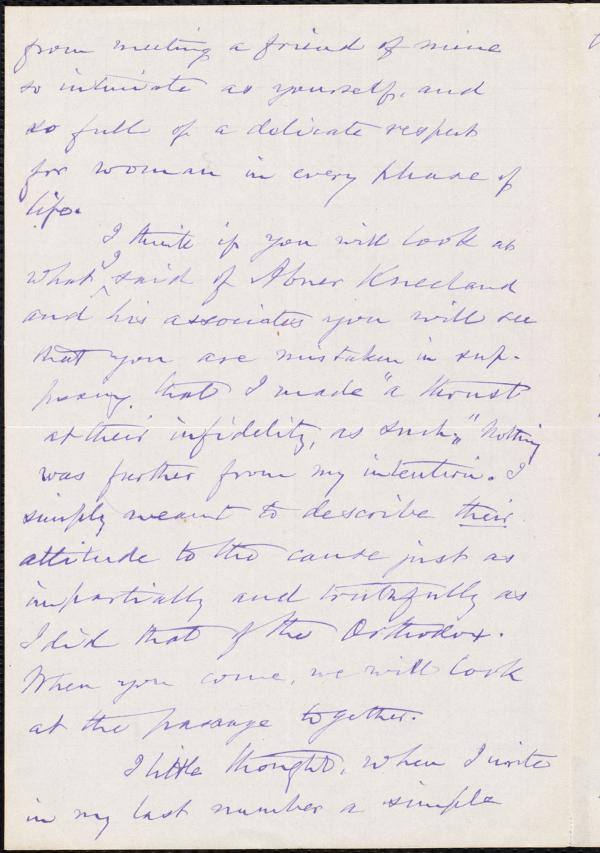 from meeting a friend of mine
so intimate as yourself, and
so full of a delicate respect
for woman in every phase of
life.
I think if you will look at
what I said of Abner Kneeland
and his associates you will see
that you are mistaken in sup-
posing that I made "a thrust
at their infidelity, as such," Nothing
was further from my intention. I
simply meant to describe their
attitude to the cause just as
impartially and truthfully as
I did that of the Orthodox.
When you come, we will look
at the passage together.
I little thought, when I wrote
in my last number a simple